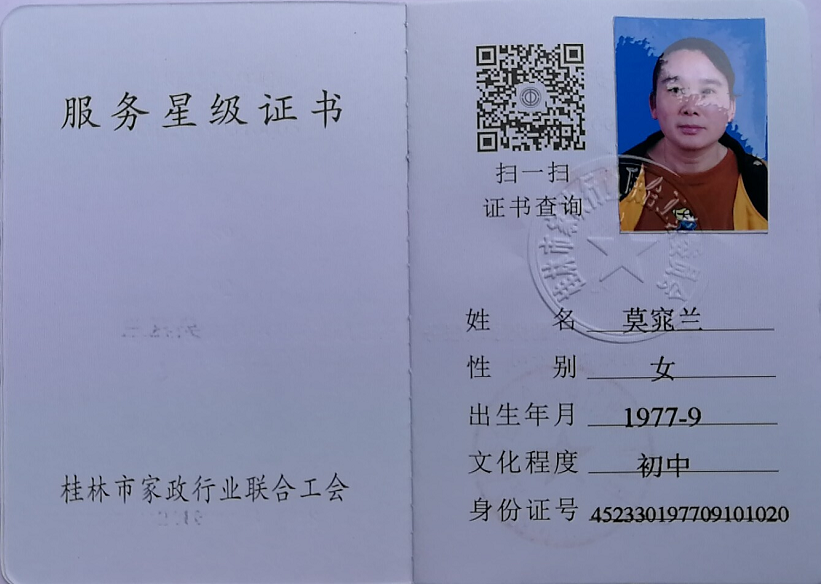 服务星级证书
桂林市家政行业联合工会
扫一扫
证书查询
姓 名 莫窕兰
性 别 女
出生年月 1977-9
文化程度 初中
身份证号 452330197709101020